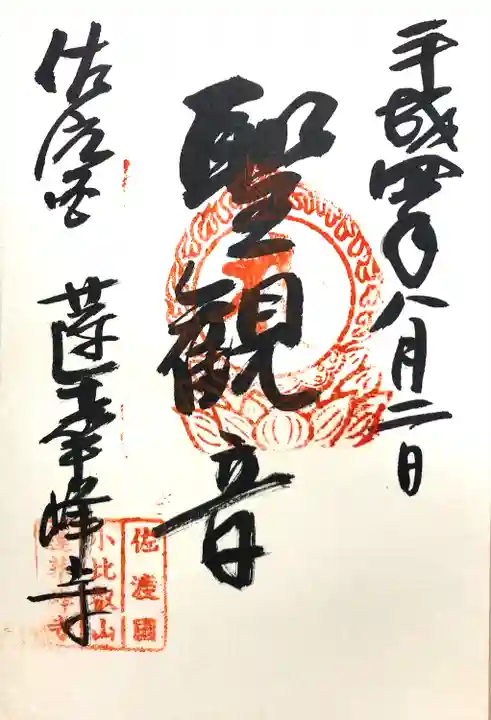 平成四年八月二日
聖観音
佐渡国
蓮華峰寺
佐渡國
小比叡山
蓮華峰寺